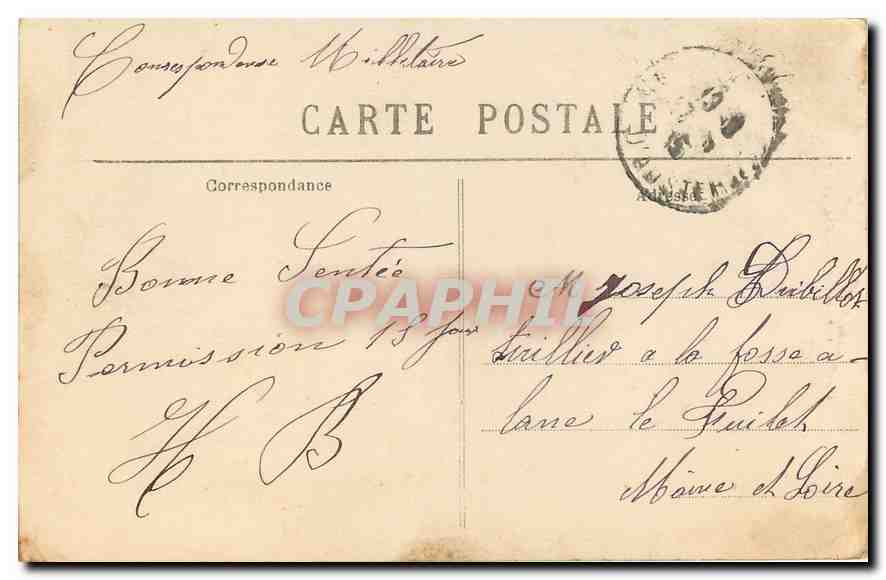 Correspondense Millitaire
CARTE POSTALE
Correspondance
Adresse
Bonne Sentée
Permission 15 jour
H B
M Joseph Dubillot
tuillier a la fosse a
lane le Fuilet
Maine et Loire
CPAPHIL